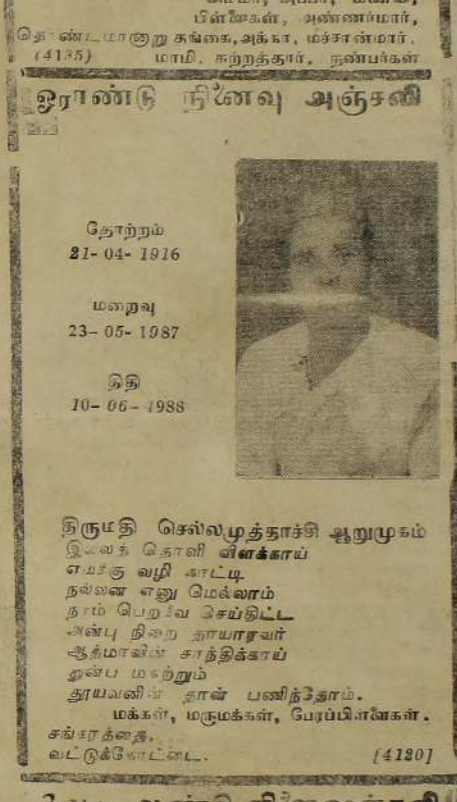 பிள்ளைகள், அண்ணர்மார்,
தொண்டமானாறு தங்கை, அக்கா, மச்சான்மார்,
(4135) மாமி, சுற்றத்தார், நண்பர்கள்
ஓராண்டு நினைவு அஞ்சலி
தோற்றம்
21-04-1916
மறைவு
23-05-1987
திதி
10-06-1988
திருமதி செல்லமுத்தாச்சி ஆறுமுகம்
விளக்காய்
எமக்கு வழி காட்டி
நல்லன எனு மெல்லாம்
நாம் பெறவே செய்திட்ட
அன்பு நிறை தாயாரவர்
ஆத்மாவின் சாந்திக்காய்
துன்ப மகற்றும்
தூயவனின் தாள் பணிந்தோம்.
மக்கள், மருமக்கள், பேரப்பிள்ளைகள்.
சங்கரத்தை,
வட்டுக்கோட்டை. [4120]